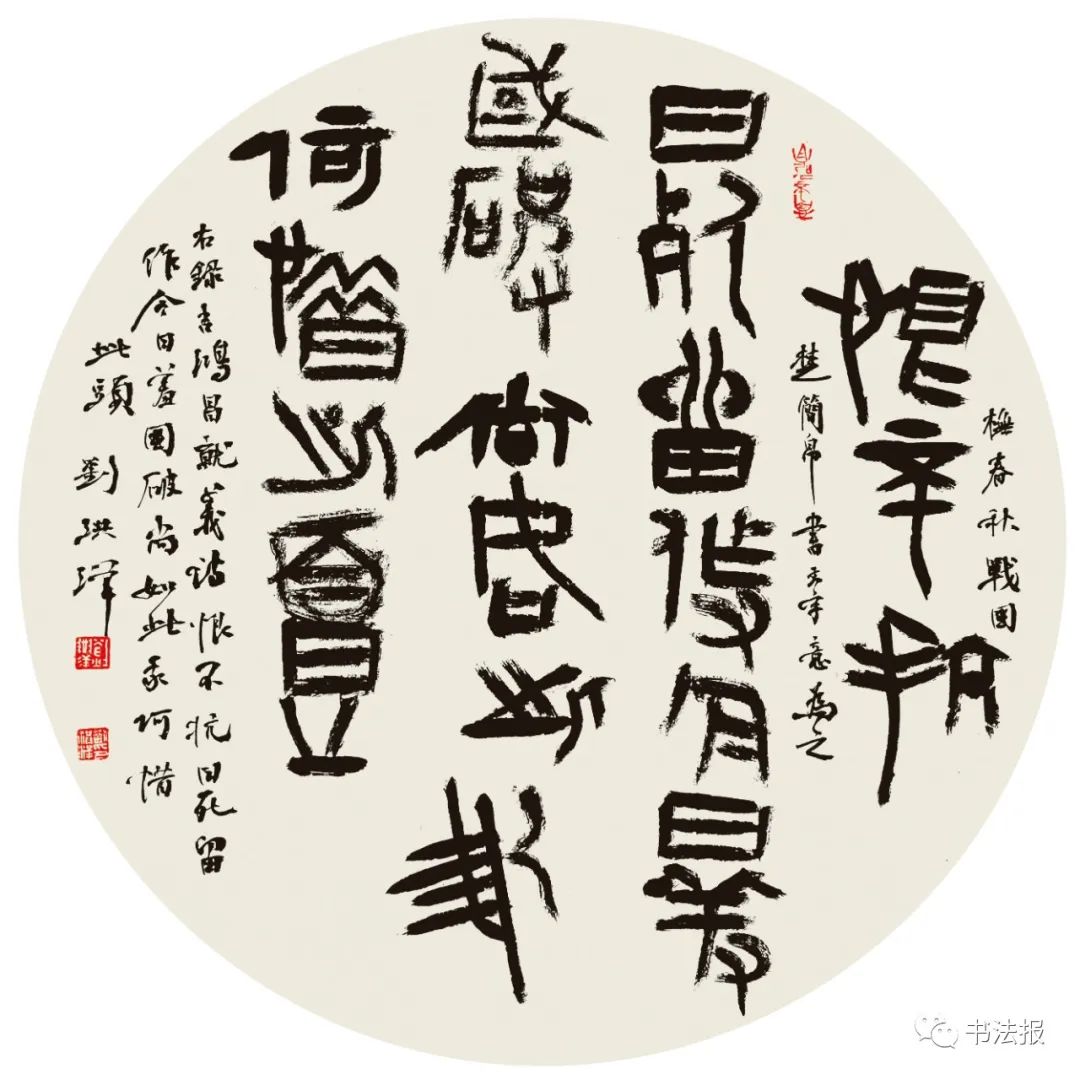 橅春秋戰國
恨不抗
楚簡帛書文字意為之
日死留作今日羞
國破尚如此我
何惜此頭
右錄吉鴻昌就義詩恨不抗日死留
作今日羞國破尚如此我何惜
此頭 劉洪澤
书法报